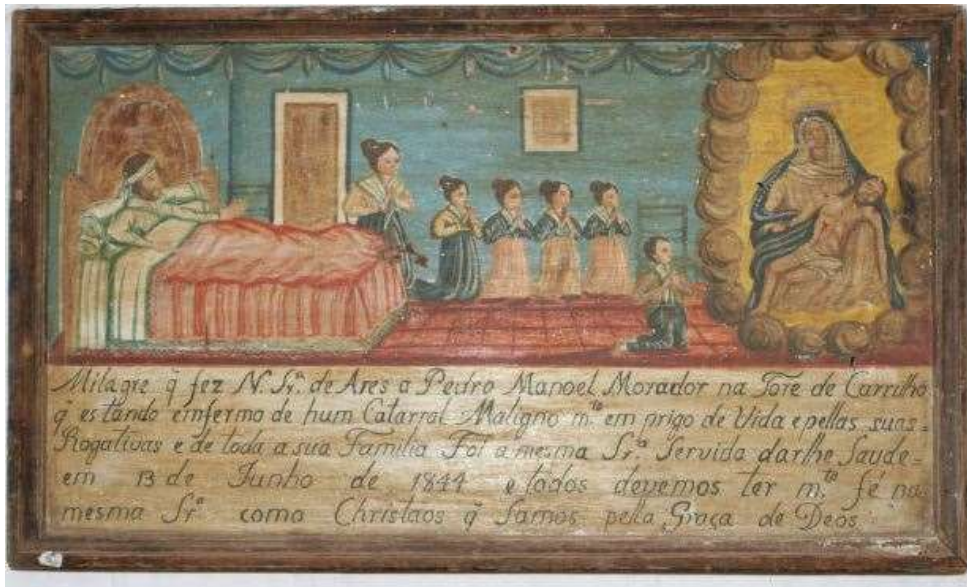 Milagre q̃ fez N. Sr.ª de Ares a Pedro Manoel Morador na Tore de Carrilho
q̃ estando emfermo de hum Catarral Maligno m.to em prigo de Vida e pellas suas=
Rogativas e de toda a sua Familia Foi a mesma Sr.ª Servida darlhe Saude=
em 13 de Junho de 1844 e todos devemos ter m.ta fé na
mesma Sr.ª como Christaos q̃ Samos pella Graça de Deos.